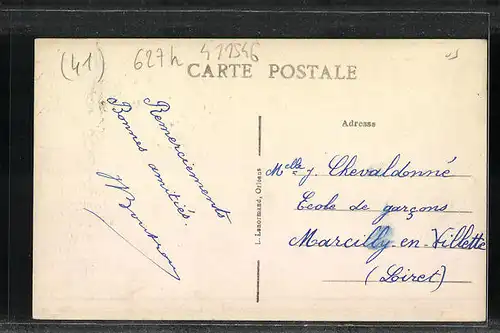 (41) 627h 411546
CARTE POSTALE
Remerciements
Bonnes amitiés.
L. Lenormand, Orléans
Adresse
Melle J. Chevaldonné
Ecole de garçons
Marcilly-en-Villette
(Loiret)